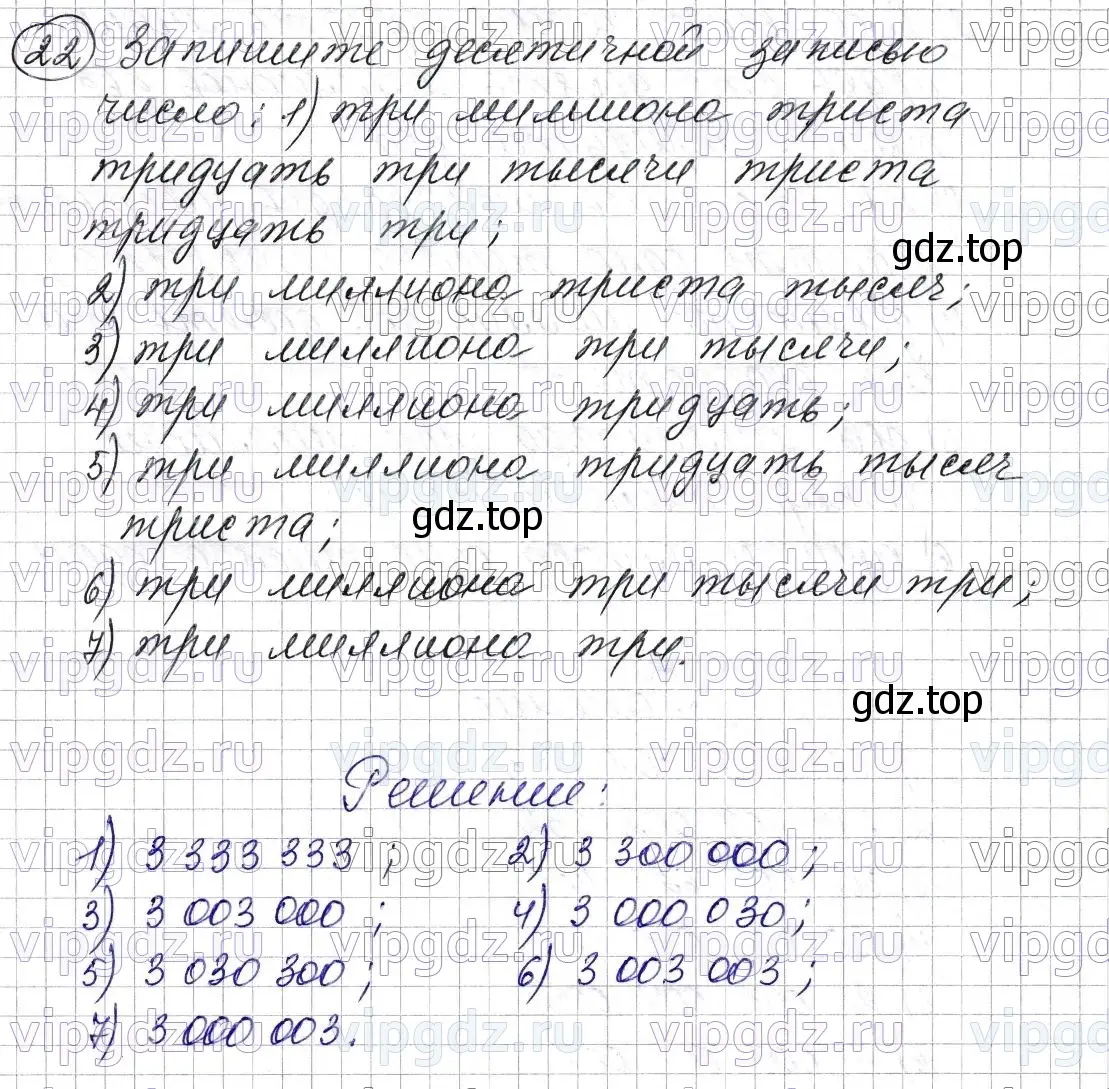 22 Запишите десятичной записью
число: 1) три миллиона триста
тридцать три тысячи триста
тридцать три;
gdz.top
2) три миллиона триста тысяч;
3) три миллиона три тысячи;
4) три миллиона тридцать;
5) три миллиона тридцать тысяч
триста;
gdz.top
6) три миллиона три тысячи три;
7) три миллиона три.
gdz.top
Решение:
1) 3 333 333 ; 2) 3 300 000;
3) 3 003 000 ; 4) 3 000 030;
5) 3 030 300 ; 6) 3 003 003 ;
7) 3 000 003.
vipgdz.ru